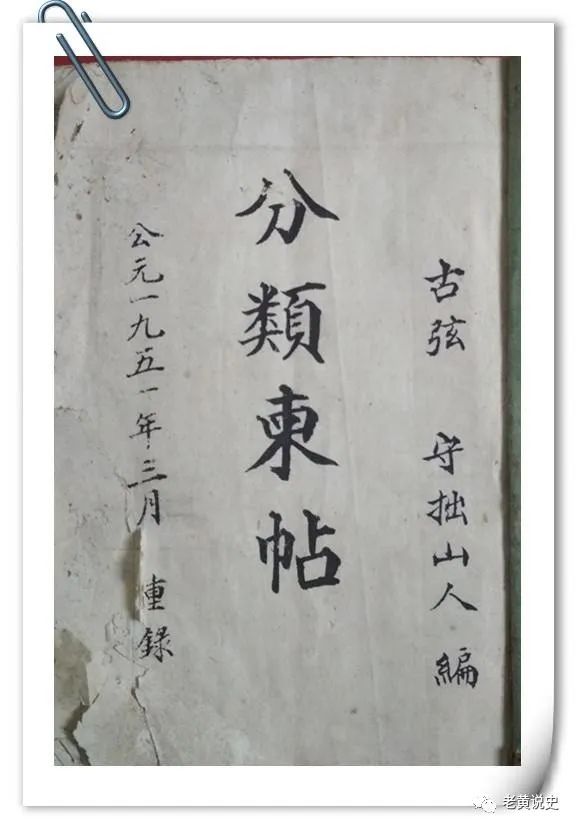 古弦 守拙山人 編
分類柬帖
公元一九五一年三月 重錄
老黄说史